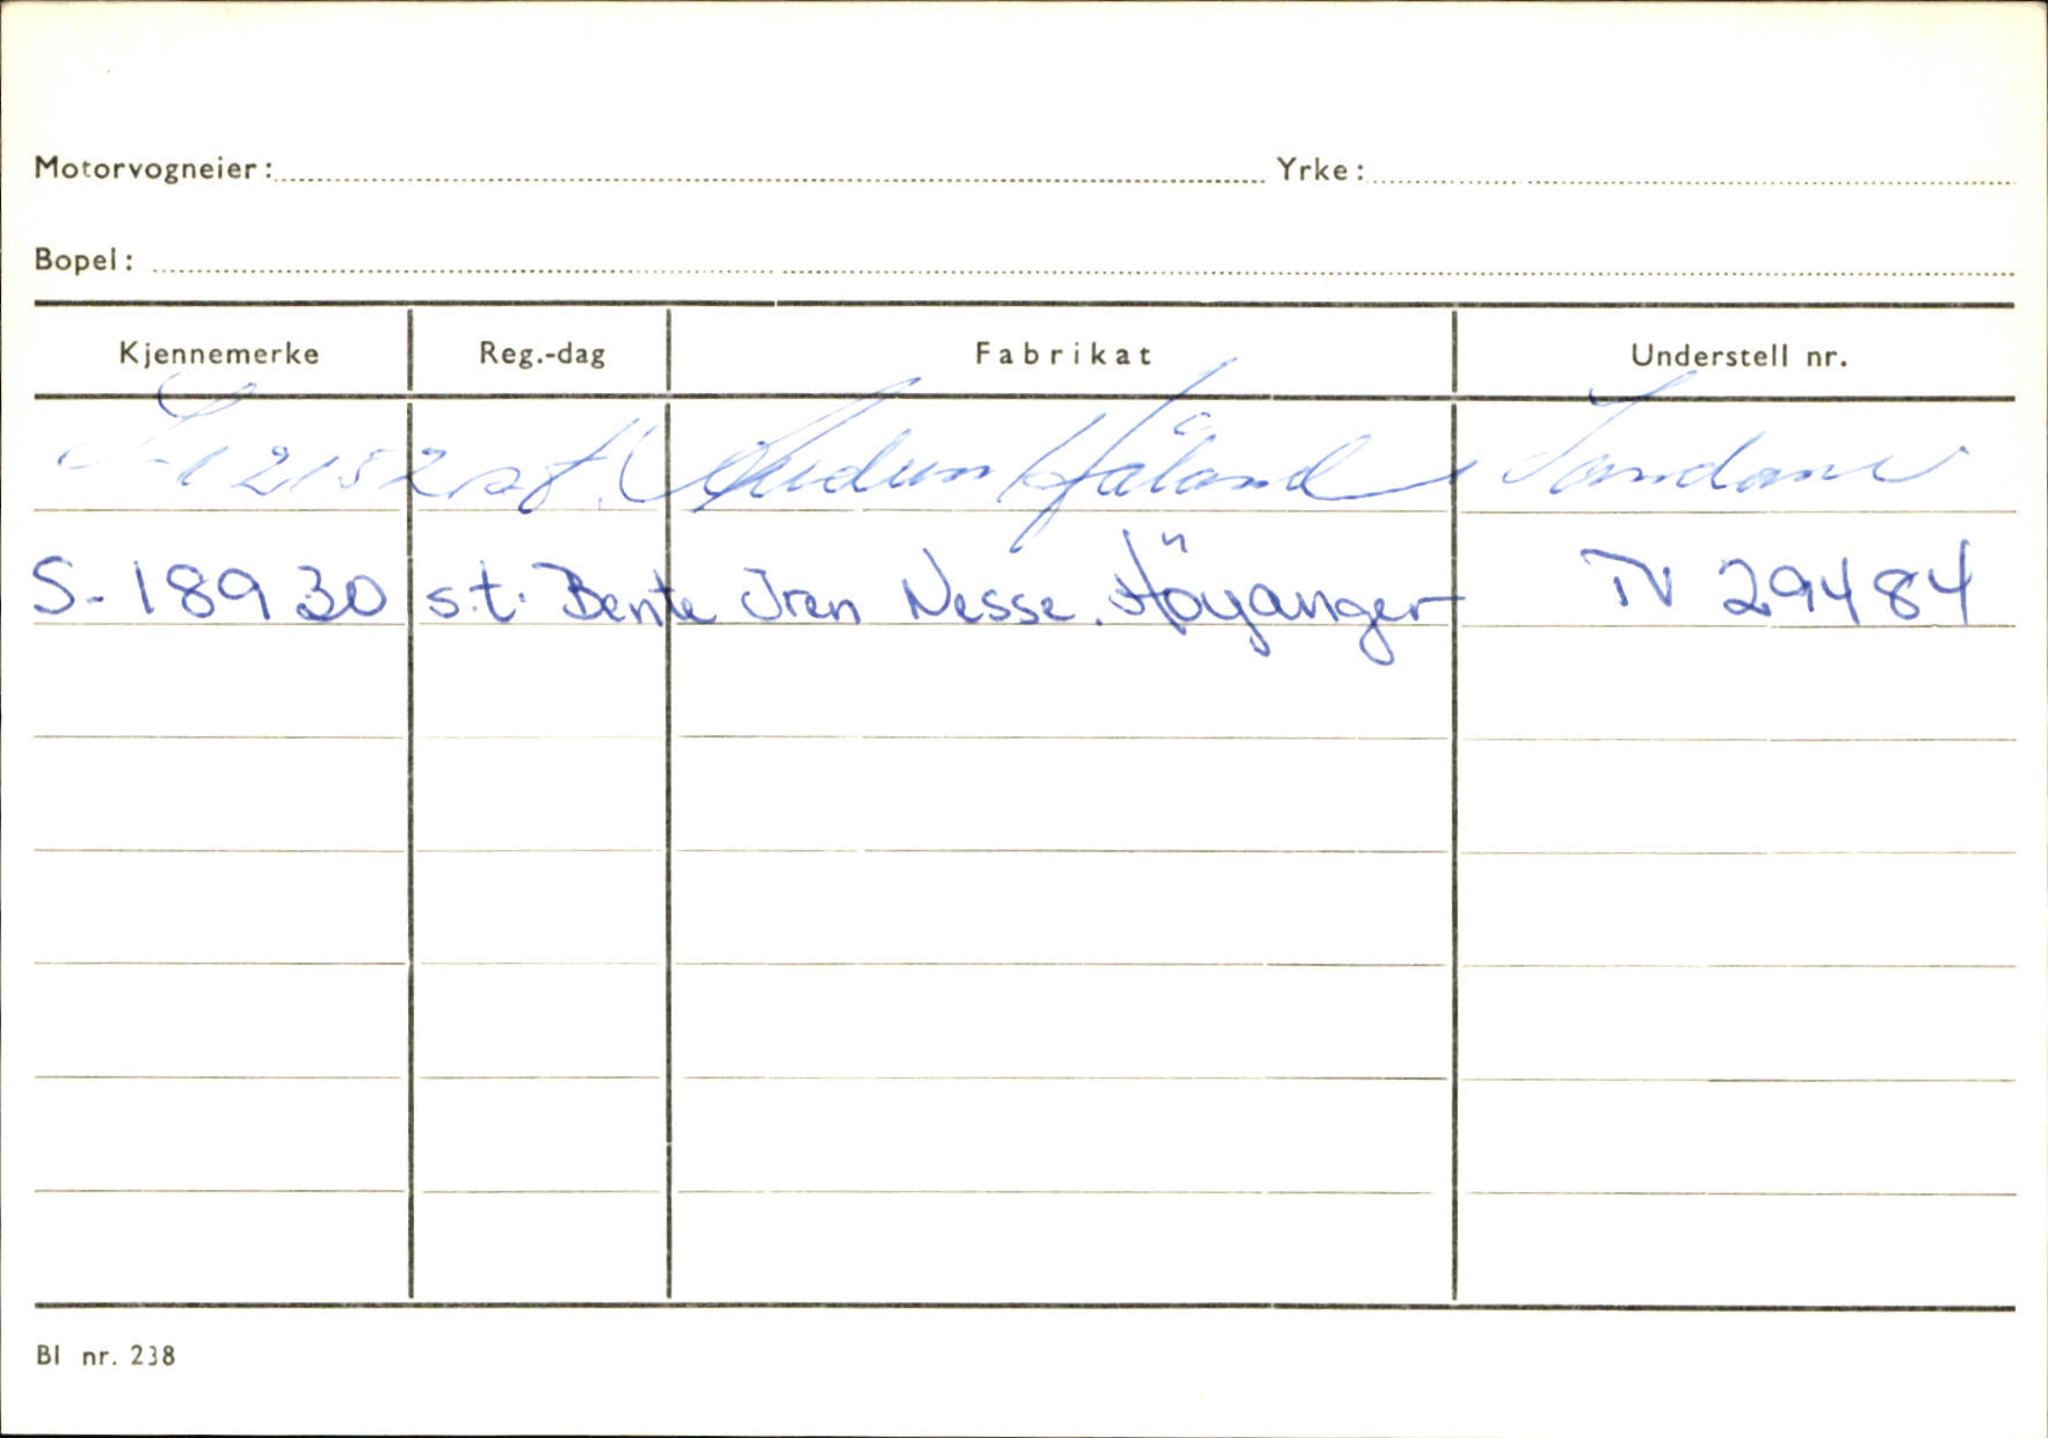 Motorvogneier: Yrke:
Bopel:
Kjennemerke Reg.-dag Fabrikat Understell nr.
S-12152 st. Audun Håland, Sandane
S-18930 s.t. Bente Iren Nesse. Höyanger TV 29484
Bl nr. 238